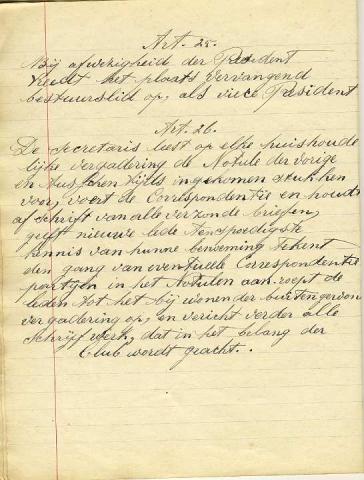 Art. 25.
Bij afwezigheid der President
treedt het plaats vervangend
bestuurslid op, als vice President
Art. 26.
De secretaris leest op elke huishoude
lijke vergadering de Notule der vorige
en tusschentijds ingekomen stukken
voor, voert de Correspondentie en houdt
afschrift van alle verzonde brieven,
geeft nieuwe lede ten spoedigste
kennis van hunne benoeming tekent
den gang van eventueele Correspondentie
partijen in het Notulen aan roept de
leden tot het bij wonen der buitengewone
vergadering op, en vericht verder alle
schrijfwerk, dat in het belang der
Club wordt geacht.